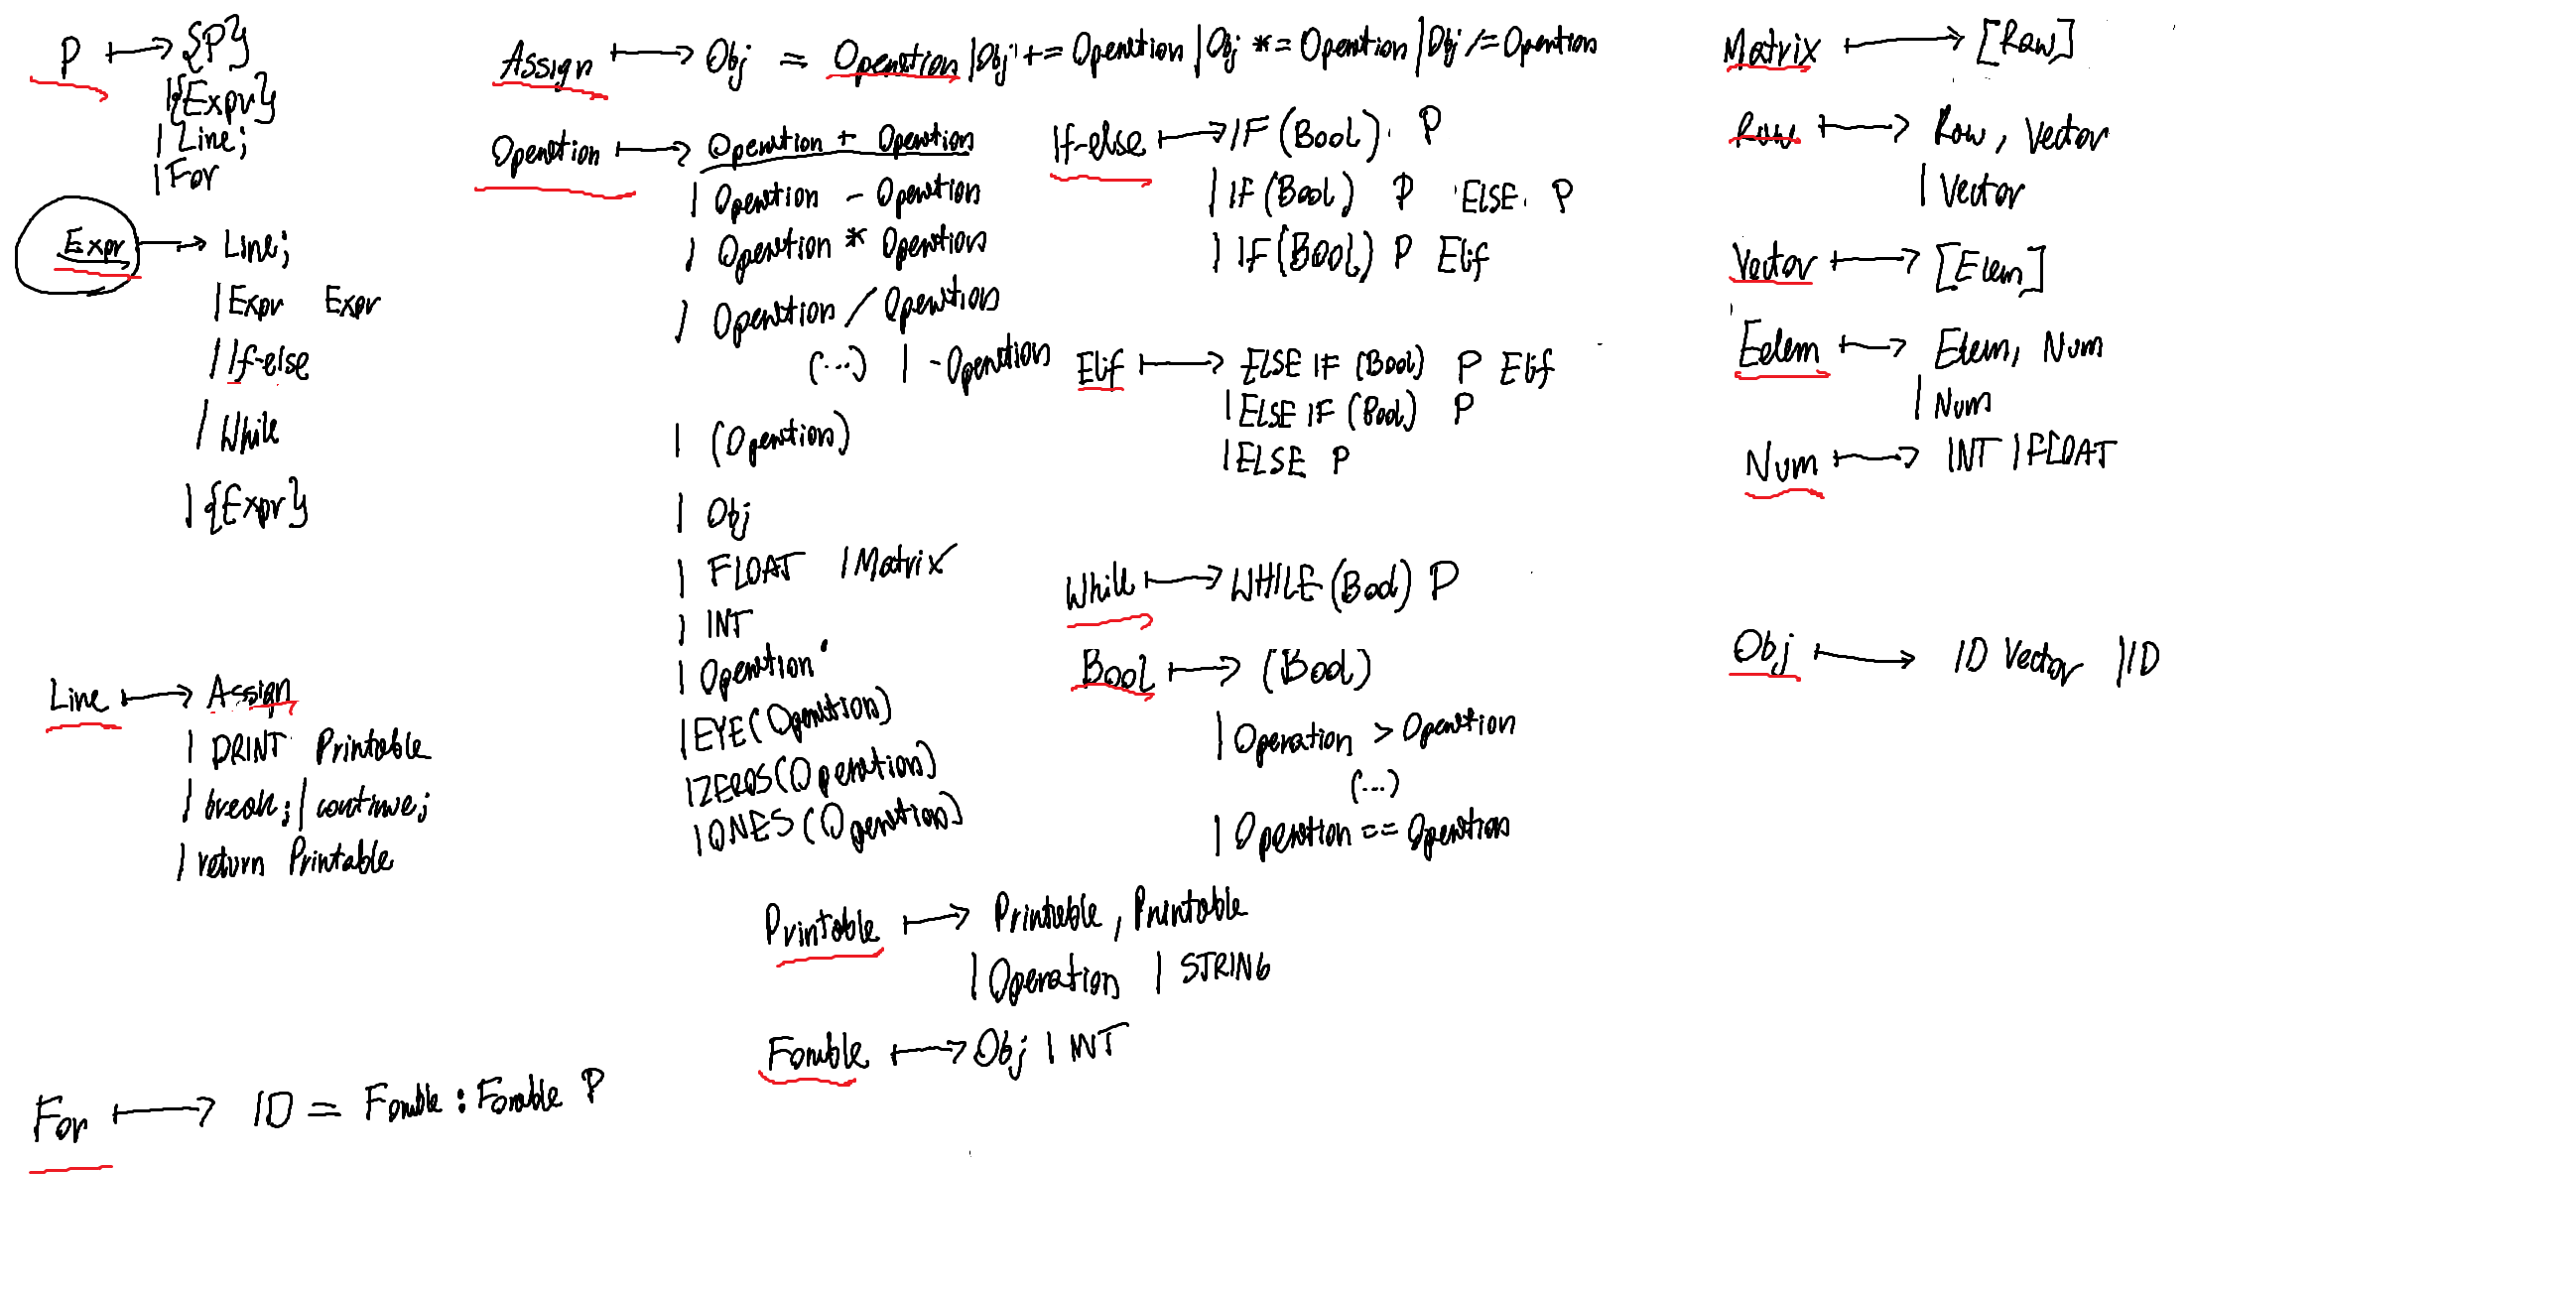 P ↦ {P}
| {Expr}
| Line;
| For
Expr → Line;
| Expr Expr
| If-else
| While
| {Expr}
Line ↦ Assign
| PRINT Printable
| break; | continue;
| return Printable
For ↦ ID = Forable : Forable P
Assign ↦ Obj = Operation | Obj += Operation | Obj *= Operation | Obj /= Operation
Operation ↦ Operation + Operation
| Operation - Operation
| Operation * Operation
| Operation / Operation
(...) | -Operation
| (Operation)
| Obj
| FLOAT | Matrix
| INT
| Operation'
| EYE(Operation)
| ZEROS(Operation)
| ONES(Operation)
Printable ↦ Printable, Printable
| Operation | STRING
Forable ↦ Obj | INT
If-else ↦ IF (Bool) P
| IF (Bool) P ELSE P
| IF (BOOL) P Elif
Elif ↦ ELSE IF (Bool) P Elif
| ELSE IF (Bool) P
| ELSE P
While ↦ WHILE (Bool) P
Bool ↦ (Bool)
| Operation > Operation
(...)
| Operation == Operation
Matrix ↦ [Raw]
Raw ↦ Row, Vector
| Vector
Vector ↦ [Elem]
Eelem ↦ Elem, Num
| Num
Num ↦ INT | FLOAT
Obj ↦ ID Vector | ID